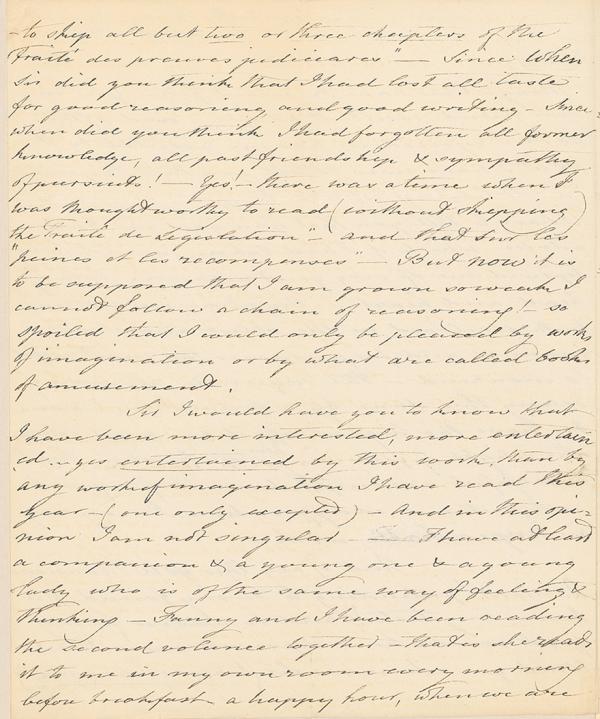 - to skip all but two or three chapters of the
Traité des preuves judiciares" — Since when
Sir did you think that I had lost all taste
for good reasoning and good writing - Since
when did you think I had forgotten all former
knowledge, all past friendship & sympathy
of pursuits! — Yes! - there was a time when I
was thought worthy to read (without skipping)
the Traité de Legislation" - and that sur les
"peines et les recompenses" - But now it is
to be supposed that I am grown so weak I
cannot follow a chain of reasoning! - so
spoiled that I would only be pleased by works
of imagination or by what are called books
of amusement.
Sir I would have you to know that
I have been more interested, more entertain
ed - yes entertained by this work than by
any work of imagination I have read this
year - (one only excepted) - And in this opi-
nion I am not singular — I have at least
a companion & a young one & a young
lady who is of the same way of feeling &
thinking - Fanny and I have been reading
the second volume together - that is she reads
it to me in my own room every morning
before breakfast a happy hour, when we are